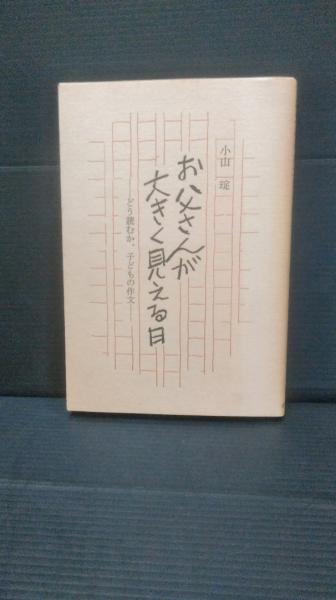 小山 琔
お父さんが
大きく見える日
──どう読むか、子どもの作文──